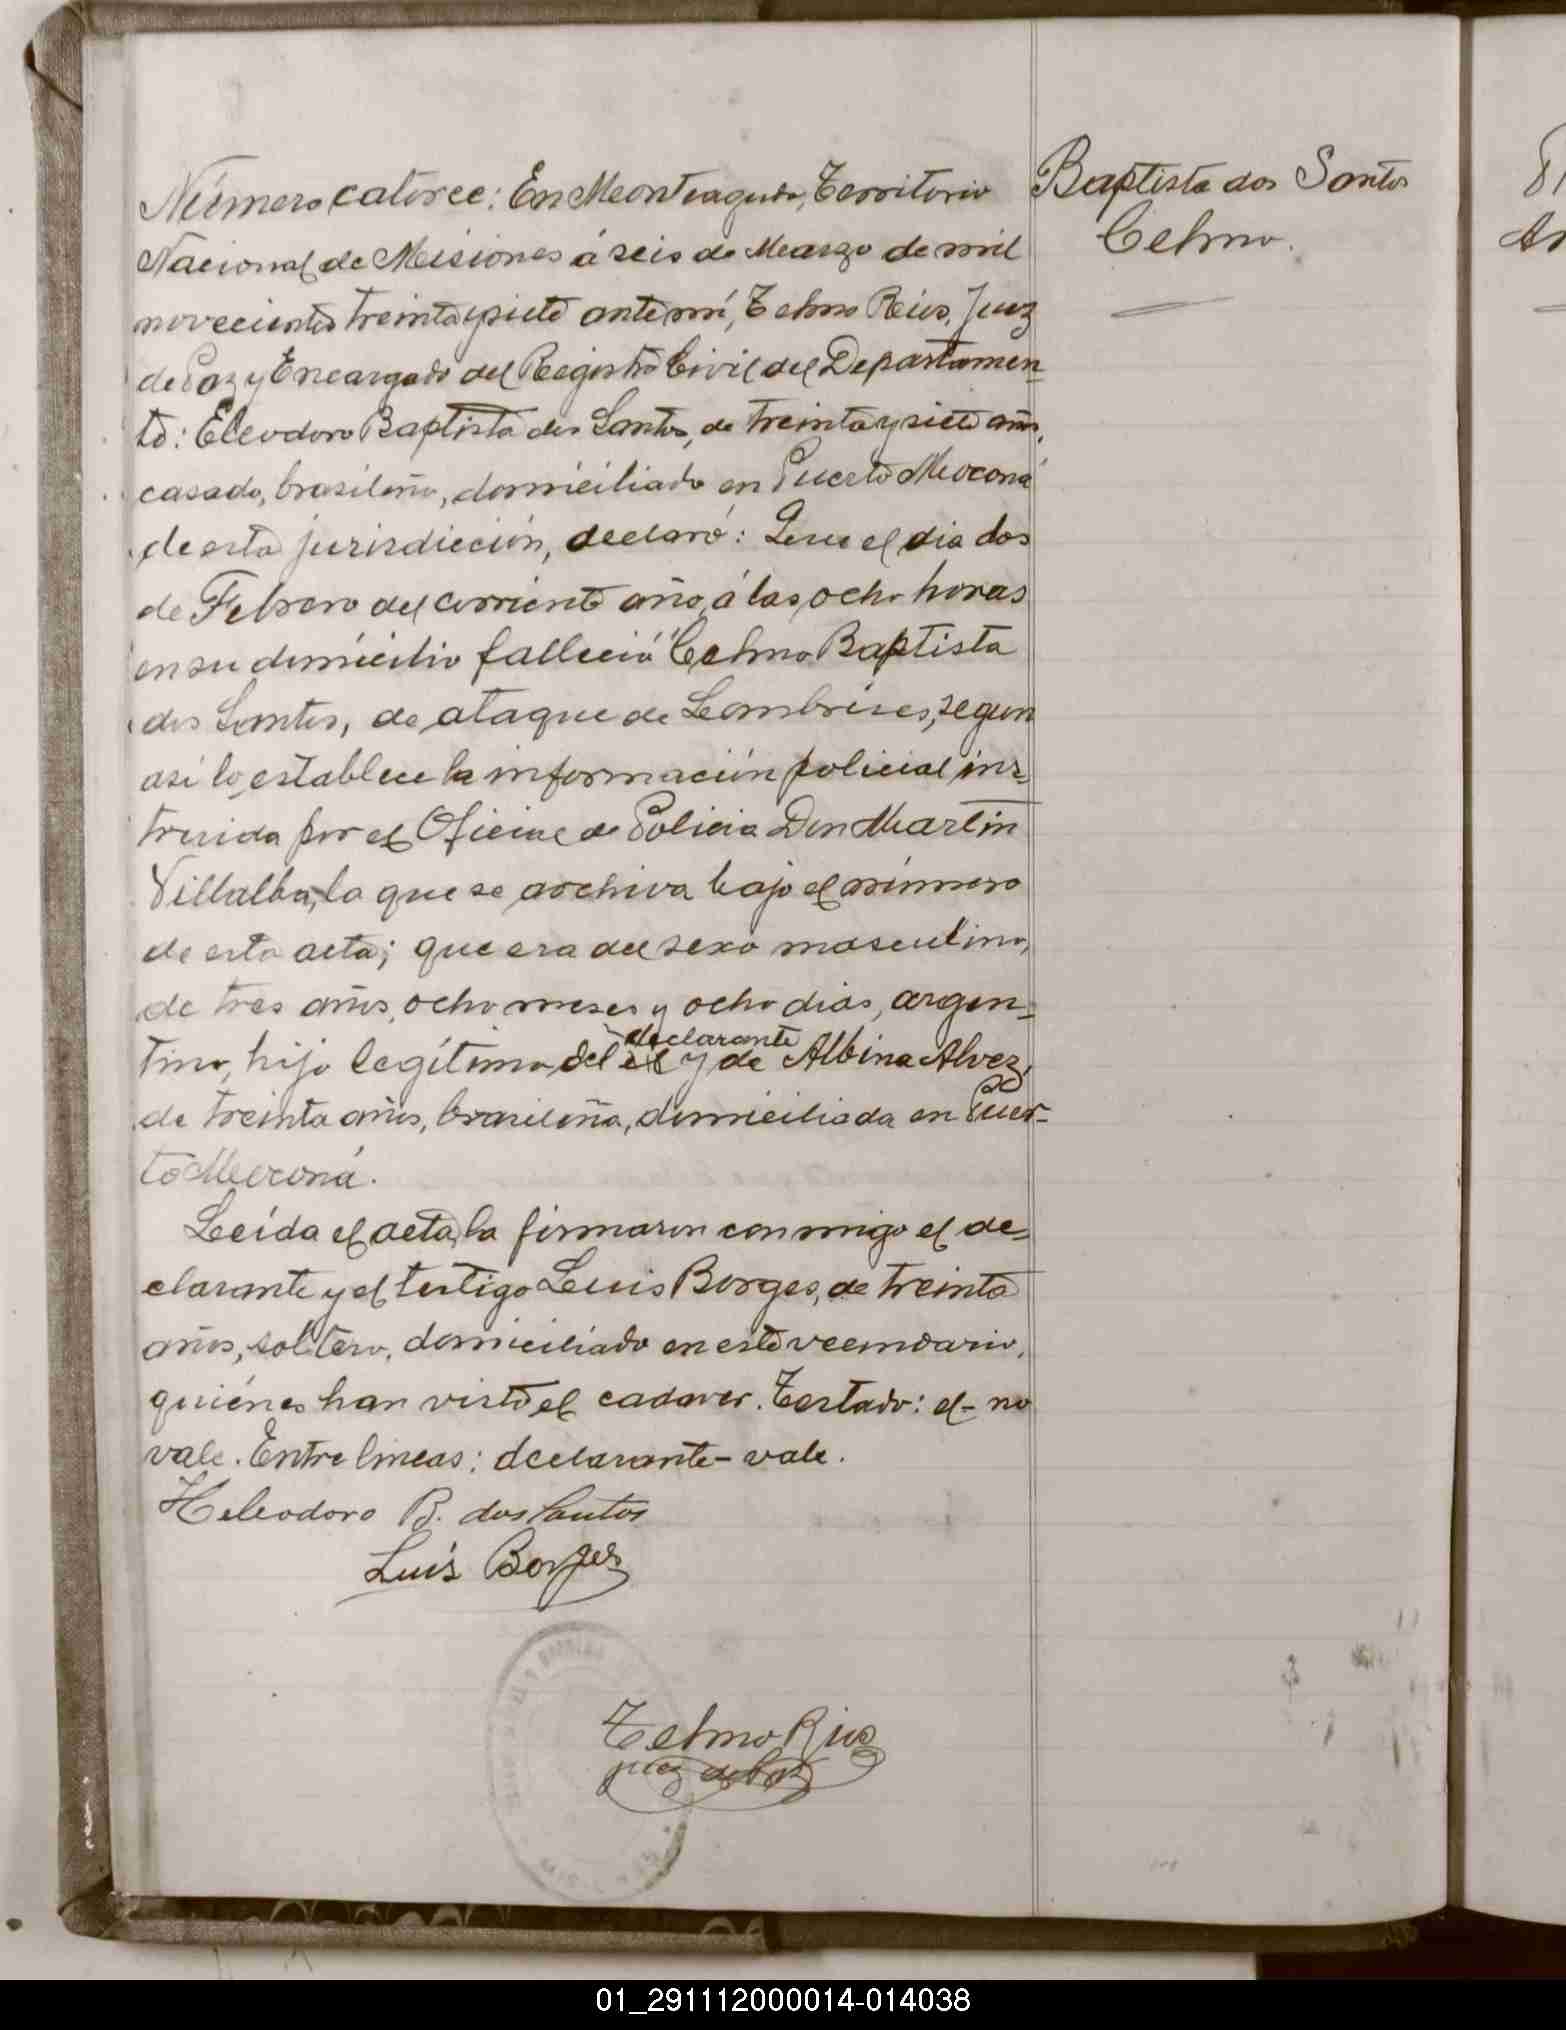 Número catorce: En Monteagudo, Territorio
Nacional de Misiones á seis de Marzo de mil
novecientos treinta y siete ante mí, Telmo Rius, Juez
de Paz y Encargado del Registro Civil del Departamen-
to: Eleodoro Baptista dos Santos, de treinta y siete años,
casado, brasileño, domiciliado en Puerto Moconá
de esta jurisdicción, declaró: Que el dia dos
de Febrero del corriente año, á las ocho horas
en su domicilio falleció Celmo Baptista
dos Santos, de ataque de Lombrices, segun
asi lo establece la información policial ins-
truida por el Oficial de Policia Don Martin
Villalba, la que se archiva bajo el número
de esta acta; que era del sexo masculino,
de tres años, ocho meses y ocho dias, argen-
declarante
tino, hijo legítimo del el y de Albina Alvez,
de treinta años, brasileña, domiciliada en Puer-
to Moconá.
Leída el acta, la firmaron conmigo el de-
clarante y el testigo Luis Borges, de treinta
años, soltero, domiciliado en este vecindario,
quiénes han visto el cadaver. Testado: el - no
vale. Entre lineas: declarante - vale.
Heleodoro B. dos Santos
Luis Borges
Telmo Rius
juez de Paz
Baptista dos Santos
Celmo.
01_291112000014-014038